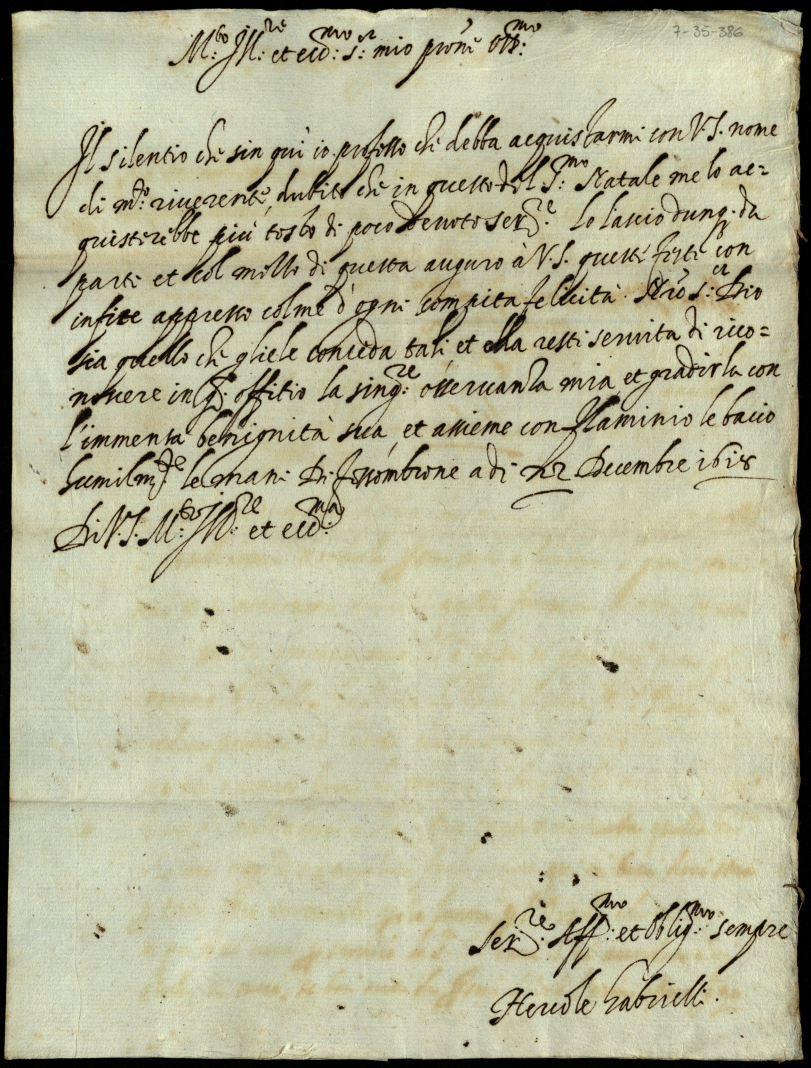 7-35-386
M.to Ill.re et ecc.mo s.r mio proñe oss.mo
Il silentio che sin quì io professo che debba acquistarmi con V.S. nome
di m.to riverente, dubito che in questo del S.mo Natale me lo ac=
quisterebbe più tosto di poco devoto ser.re Lo lascio dunq. da
parte et col mezzo di questa auguro à V.S. queste feste con
infite appresso colme d'ogni compita felicità. N̄ro s.r Dio
sia quello che gliele conceda tali et ella resti servita di rico=
noscere in q. offitio la sing.re osservanza mia et gradirla con
l'immensa benignità sua, et assieme con Flaminio le bacio
humilm.te le mani. Di Fossombrone a di 22 Decembre 1618
Di V.S. M.to Ill.re et ecc.ma
Ser.re Aff.mo et oblig.mo sempre
Hercole Gabrielli.